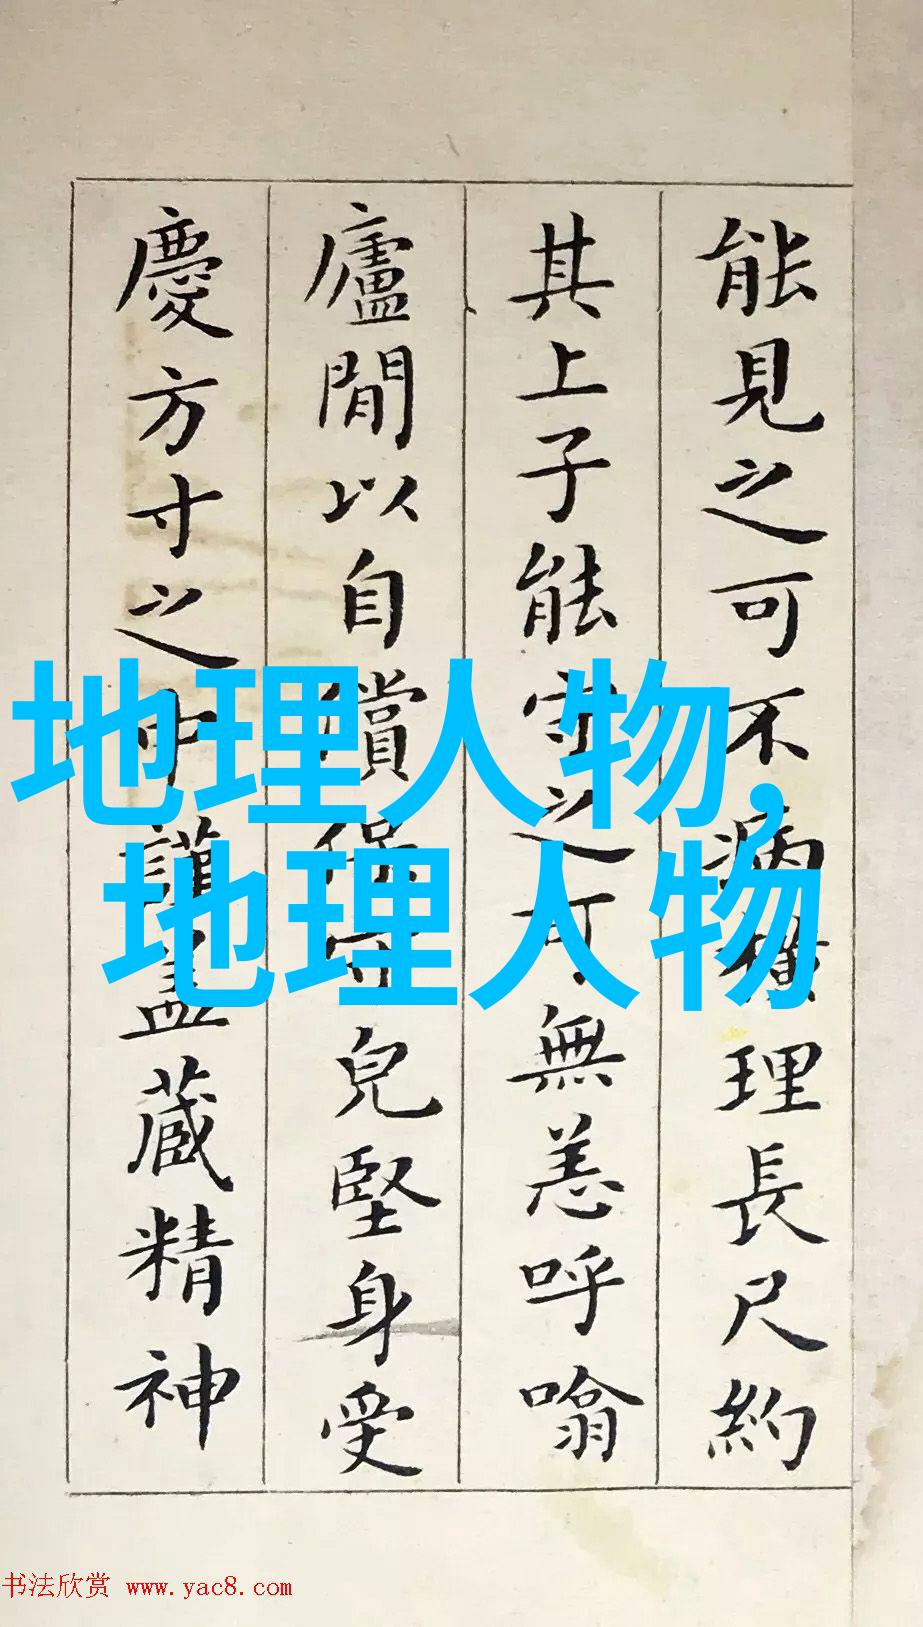 能見之可不病橫理長尺約
其上子能守之可無恙呼噏
廬間以自償保守皃堅身受
慶方寸之中謹蓋藏精神
地理人物,
地理人物
书法欣赏 www.yac8.com